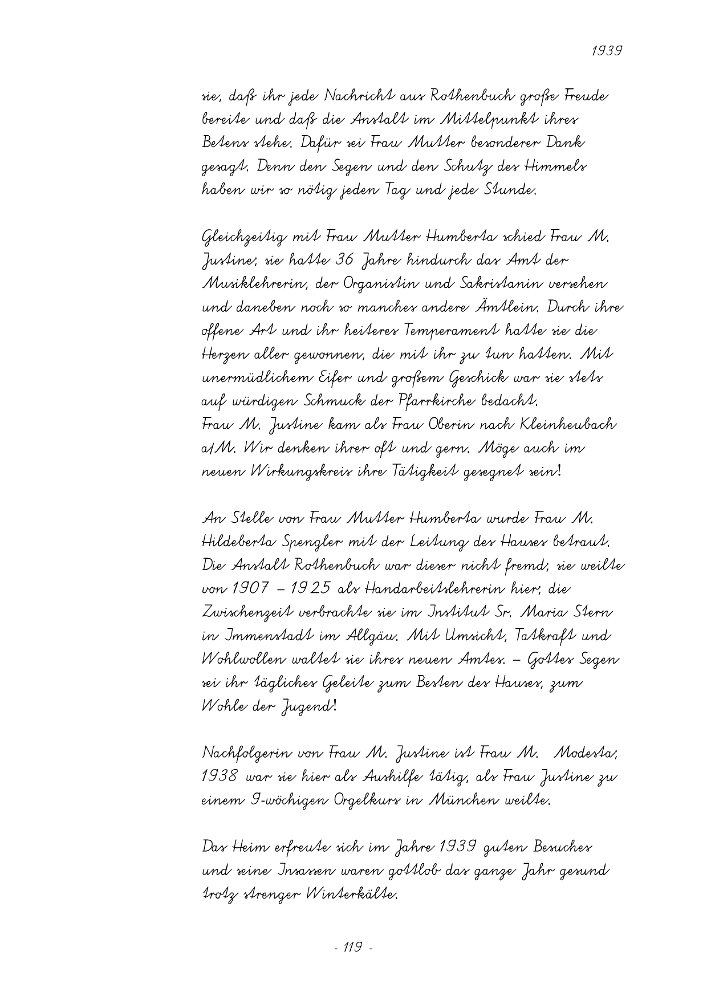 1939
sie, daß ihr jede Nachricht aus Rothenbuch große Freude
bereite und daß die Anstalt im Mittelpunkt ihres
Betens stehe. Dafür sei Frau Mutter besonderer Dank
gesagt. Denn den Segen und den Schutz des Himmels
haben wir so nötig jeden Tag und jede Stunde.
Gleichzeitig mit Frau Mutter Humberta schied Frau M.
Justine; sie hatte 36 Jahre hindurch das Amt der
Musiklehrerin, der Organistin und Sakristanin versehen
und daneben noch so manches andere Ämtlein. Durch ihre
offene Art und ihr heiteres Temperament hatte sie die
Herzen aller gewonnen, die mit ihr zu tun hatten. Mit
unermüdlichem Eifer und großem Geschick war sie stets
auf würdigen Schmuck der Pfarrkirche bedacht.
Frau M. Justine kam als Frau Oberin nach Kleinheubach
a/M. Wir denken ihrer oft und gern. Möge auch im
neuen Wirkungskreis ihre Tätigkeit gesegnet sein!
An Stelle von Frau Mutter Humberta wurde Frau M.
Hildeberta Spengler mit der Leitung des Hauses betraut.
Die Anstalt Rothenbuch war dieser nicht fremd; sie weilte
von 1907 – 1925 als Handarbeitslehrerin hier; die
Zwischenzeit verbrachte sie im Institut Sr. Maria Stern
in Immenstadt im Allgäu. Mit Umsicht, Tatkraft und
Wohlwollen waltet sie ihres neuen Amtes. – Gottes Segen
sei ihr tägliches Geleite zum Besten des Hauses, zum
Wohle der Jugend!
Nachfolgerin von Frau M. Justine ist Frau M. Modesta;
1938 war sie hier als Aushilfe tätig, als Frau Justine zu
einem 9-wöchigen Orgelkurs in München weilte.
Das Heim erfreute sich im Jahre 1939 guten Besuches
und seine Insassen waren gottlob das ganze Jahr gesund
trotz strenger Winterkälte.
- 119 -